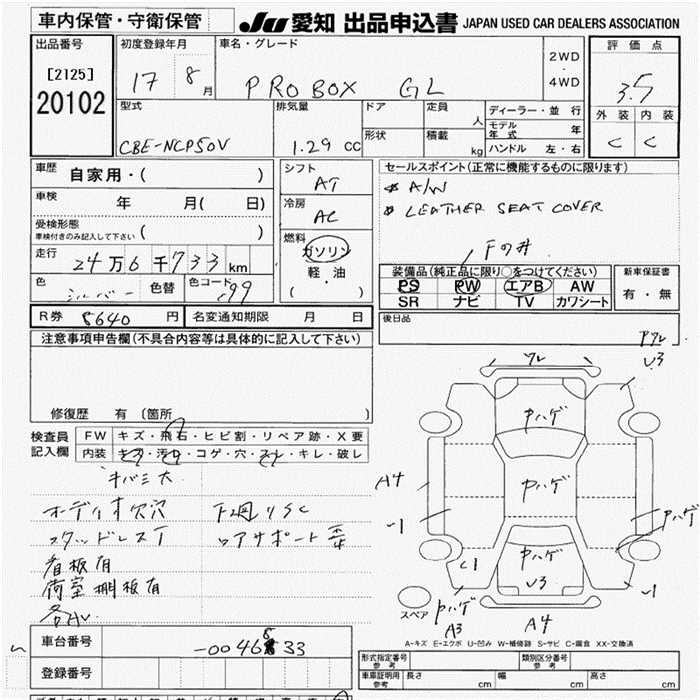 車内保管・守衛保管
JU 愛知 出品申込書 JAPAN USED CAR DEALERS ASSOCIATION
出品番号
[2125]
20102
初度登録年月
17 8月
車名・グレード
PROBOX GL
2WD
・
4WD
評価点
3.5
外装 内装
C C
型式
CBE-NCP50V
排気量
1.29 cc
ドア
定員
人
形状
積載
kg
ディーラー・並行
モデル年式 年
ハンドル 左・右
車歴
自家用・( )
車検
年 月( 日)
受検形態
車検付きのみ記入して下さい ( )
走行
24万6千733km
色
シルバー
色替
色コード
199
シフト
AT
冷房
AC
燃料
ガソリン
軽・油
( )
セールスポイント(正常に機能するものに限ります)
* A/W
* LEATHER SEAT COVER
装備品(純正品に限り○をつけてください)
PS PW エアB AW
SR ナビ TV カワシート
新車保証書
有・無
R券 8640 円
名変通知期限 月 日
後日品
注意事項申告欄(不具合内容等は具体的に記入して下さい)
修復歴 有(箇所 )
検査員
記入欄
FW キズ・飛石・ヒビ割・リペア跡・X要
内装 キズ・汚れ・コゲ・穴・スレ・キレ・破レ
オーディオ欠穴
下廻りSC
スタッドレスT
ロアサポート
看板有
荷室棚板有
ワレ
Pワレ
U3
Pハゲ
A4
Pハゲ
Pハゲ
-1
Pハゲ
U3
C1
-1
スペア
Pハゲ
A3
A4
A-キズ E-エクボ U-凹み W-補修跡 S-サビ C-腐食 XX-交換済
車台番号
-0046833
登録番号
形式指定番号
参考
類別区分番号
参考
車庫証明用
参考
長さ cm
幅 cm
高さ cm